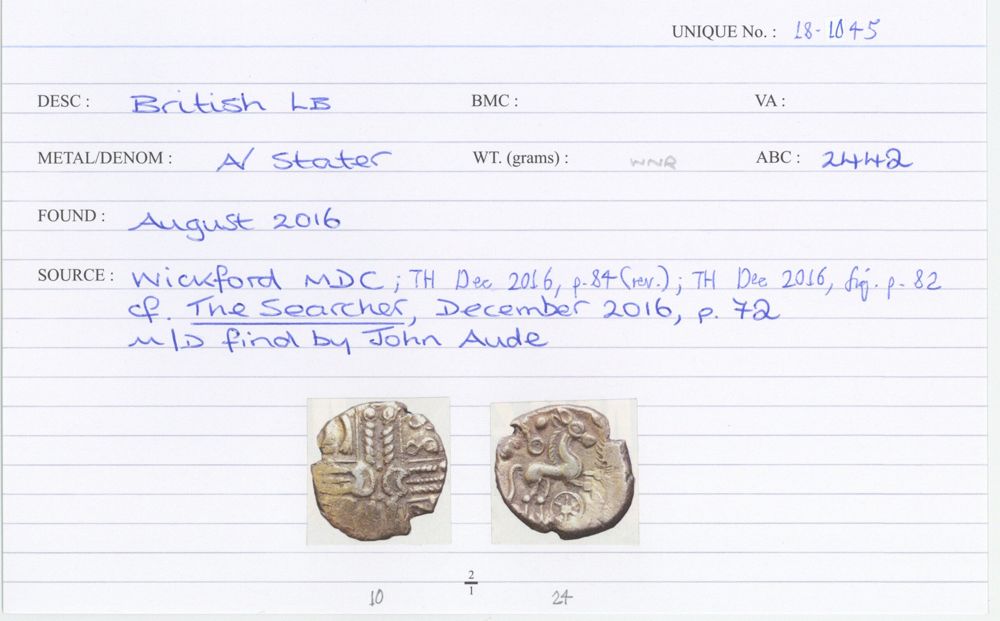 UNIQUE No. : 18-1045
DESC : British LB BMC : VA :
METAL/DENOM : A/ Stater WT. (grams) : WNR ABC : 2442
FOUND : August 2016
SOURCE : Wickford MDC ; TH Dec 2016, p.84 (rev.) ; TH Dec 2016, fig. p. 82
cf. The Searcher, December 2016, p. 72
M/D find by John Aude
2
1
10 24